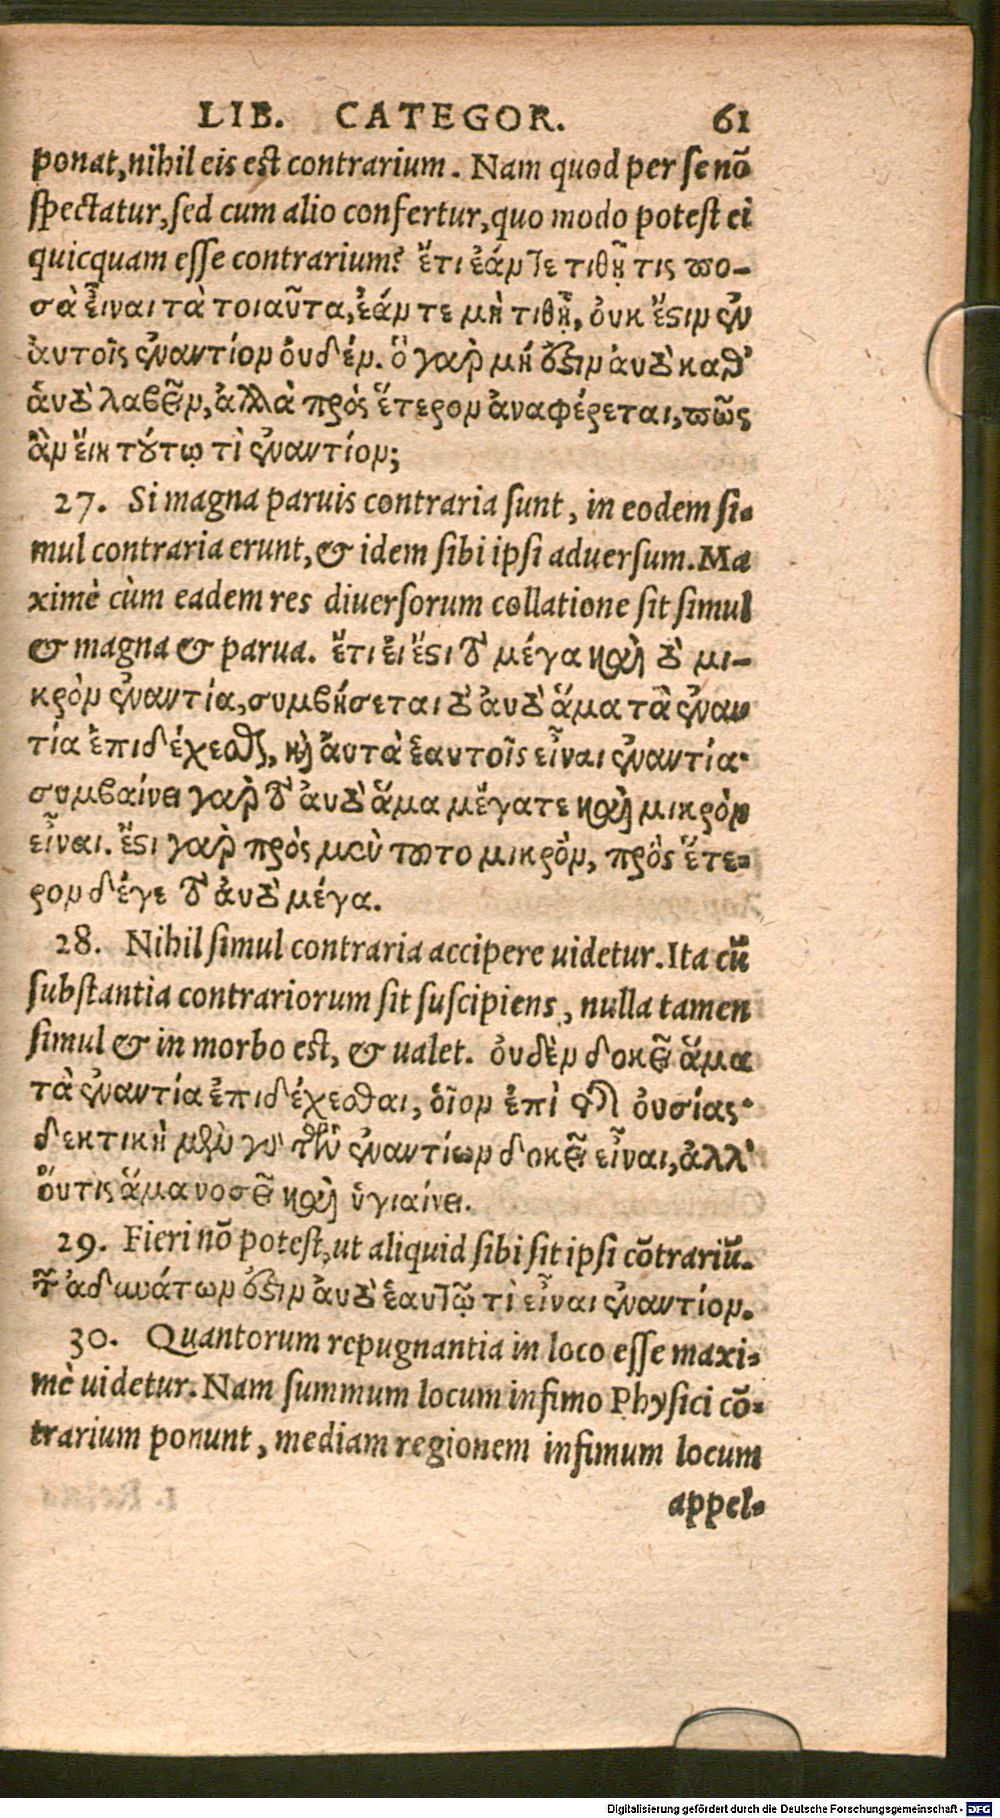 LIB. CATEGOR. 61
ponat, nihil eis est contrarium. Nam quod per se nō
spectatur, sed cum alio confertur, quo modo potest ei
quicquam esse contrarium? ἔτι ἐάν τε τιθῇ τις πο-
σὰ εἶναι τὰ τοιαῦτα, ἐάν τε μὴ τιθῇ, ὀυκ ἔστιν ἐν
ἀυτοῖς ἐναντίον ὀυδέν. ὃ γὰρ μή ὅστιν ἀυτὸ καθ’
ἁυτὸ λαβεῖν, ἀλλὰ πρός ἕτερον ἀναφέρεται, πῶς
ἂν ἔιη τούτῳ τὶ ἐναντίον;
27. Si magna paruis contraria sunt, in eodem si-
mul contraria erunt, & idem sibi ipsi aduersum. Ma
ximè cùm eadem res diuersorum collatione sit simul
& magna & parua. ἔτι ἐι ἔστι τὸ μέγα καὶ τὸ μι-
κρὸν ἐναντία, συμβήσεται τὸ ἀυτὸ ἅμα τὰ ἐναν
τία ἐπιδέχεσθαι, καὶ ἀυτὰ ἑαυτοῖς εἶναι ἐναντία·
συμβαίνει γὰρ τὸ ἀυτὸ ἅμα μέγα τε καὶ μικρὸν
εἶναι. ἔστι γὰρ πρὸς μὲν τοῦτο μικρὸν, πρὸς ἕτε-
ρον δέ γε τὸ ἀυτὸ μέγα.
28. Nihil simul contraria accipere uidetur. Ita cū
substantia contrariorum sit suscipiens, nulla tamen
simul & in morbo est, & ualet. ὀυδὲν δοκεῖ ἅμα
τὰ ἐναντία ἐπιδέχεσθαι, ὁῖον ἐπὶ τῆς ὀυσίας·
δεκτικὴ μὲν γὰρ τῶν ἐναντίων δοκεῖ εἶναι, ἀλλ’
ὄυτις ἅμα νοσεῖ καὶ ὑγιαίνει.
29. Fieri nō potest, ut aliquid sibi sit ipsi cōtrariū.
τῶν ἀδυνάτων ὅστιν ἀυτὸ ἑαυτῷ τὶ εἶναι ἐναντίον.
30. Quantorum repugnantia in loco esse maxi-
mè uidetur. Nam summum locum infimo Physici cō-
trarium ponunt, mediam regionem infimum locum
appel-
Digitalisierung gefördert durch die Deutsche Forschungsgemeinschaft - DFG